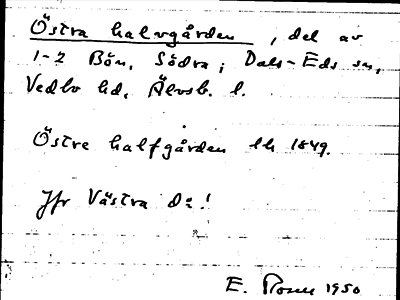 Östra halvgården, del av
1-2 Bön, Södra, Dals-Eds sn,
Vedbo hd, Älvsb. l.
Östre halfgården lh 1849.
Jfr Västra d:a!
E. 1950